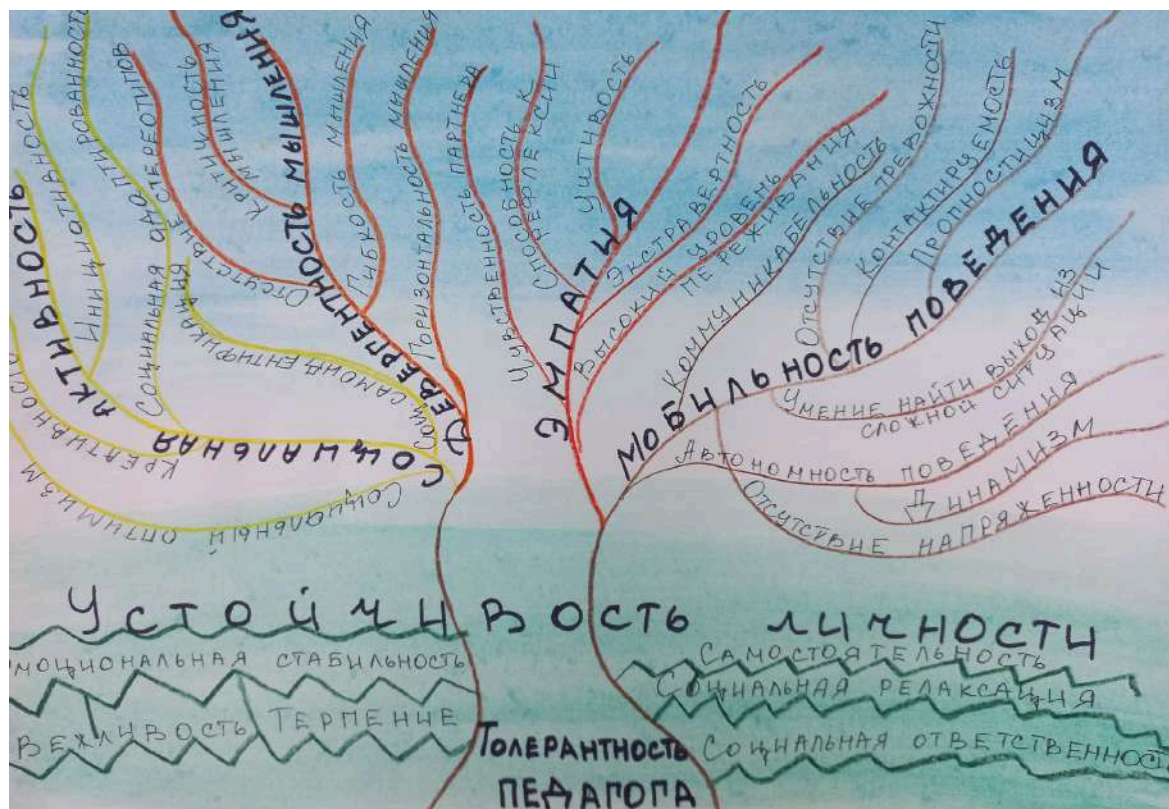 АКТИВНОСТЬ
СОЦИАЛЬНАЯ
ИНИЦИАТИВНОСТЬ
СОЦИАЛЬНАЯ АДАПТИРОВАННОСТЬ
СОЦ. САМОИДЕНТИФИКАЦИЯ
КРЕАТИВНОСТЬ
СОЦИАЛЬНЫЙ ОПТИМИЗМ
ДЕВЕРГЕНТНОСТЬ МЫШЛЕНИЯ
ОТСУТСТВИЕ СТЕРЕОТИПОВ
КРИТИЧНОСТЬ
МЫШЛЕНИЯ
ГИБКОСТЬ МЫШЛЕНИЯ
ГОРИЗОНТАЛЬНОСТЬ МЫШЛЕНИЯ
ЭМПАТИЯ
ЧУВСТВЕННОСТЬ ПАРТНЕРА
СПОСОБНОСТЬ К
РЕФЛЕКСИИ
УЧТИВОСТЬ
ЭКСТРАВЕРТНОСТЬ
ВЫСОКИЙ УРОВЕНЬ
ПЕРЕЖИВАНИЯ
МОБИЛЬНОСТЬ ПОВЕДЕНИЯ
КОММУНИКАБЕЛЬНОСТЬ
ОТСУТСТВИЕ ТРЕВОЖНОСТИ
КОНТАКТИРУЕМОСТЬ
ПРОГНОСТИЦИЗМ
УМЕНИЕ НАЙТИ ВЫХОД ИЗ
СЛОЖНОЙ СИТУАЦИИ
АВТОНОМНОСТЬ ПОВЕДЕНИЯ
ДИНАМИЗМ
ОТСУТСТВИЕ НАПРЯЖЕННОСТИ
УСТОЙЧИВОСТЬ ЛИЧНОСТИ
МОЦИОНАЛЬНАЯ СТАБИЛЬНОСТЬ
ВЕЖЛИВОСТЬ ТЕРПЕНИЕ
САМОСТОЯТЕЛЬНОСТЬ
СОЦИАЛЬНАЯ РЕЛАКСАЦИЯ
СОЦИАЛЬНАЯ ОТВЕТСТВЕННОСТЬ
ТОЛЕРАНТНОСТЬ
ПЕДАГОГА